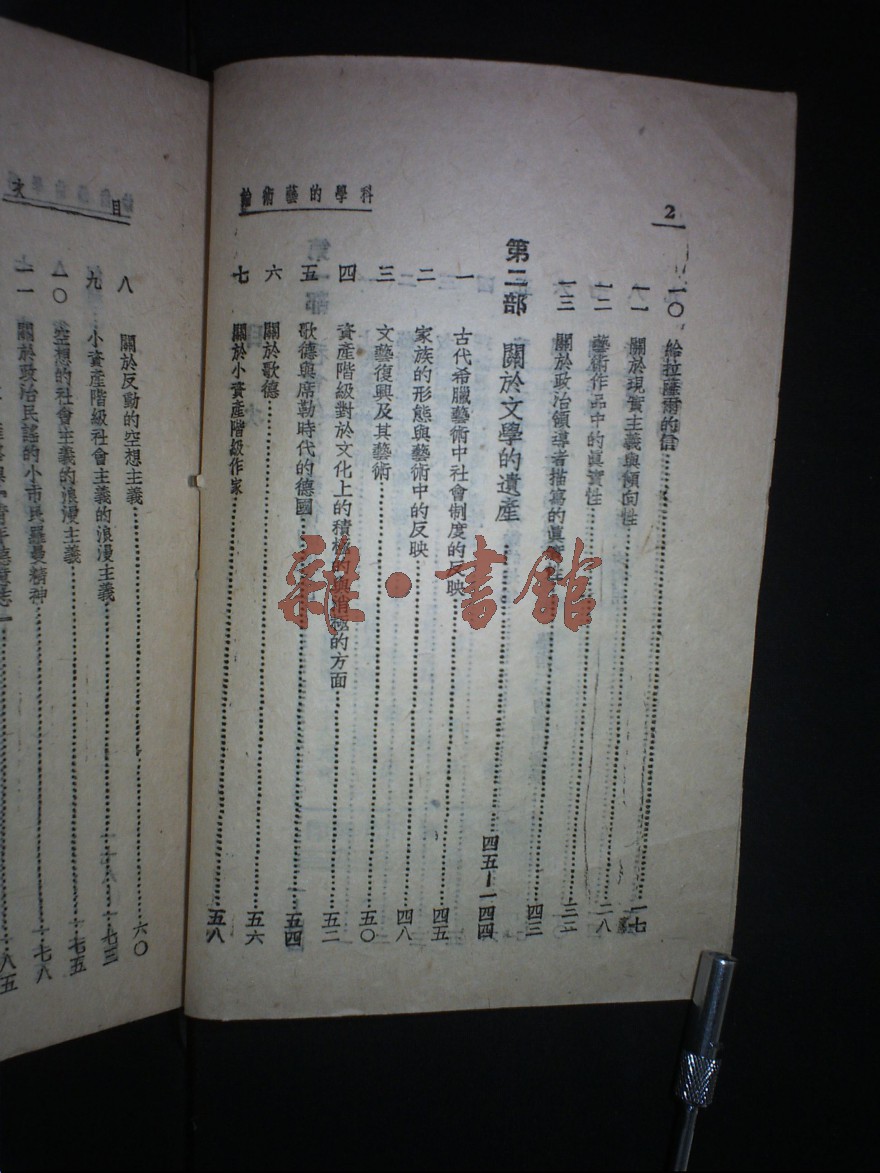 2
科學的藝術論
一〇 給拉薩爾的信……一七
一一 關於現實主義與傾向性……二八
一二 藝術作品中的眞實性……三二
一三 關於政治領導者描寫的眞實性……四三
第二部 關於文學的遺產……四五—一四四
一 古代希臘藝術中社會制度的反映……四五
二 家族的形態與藝術中的反映……四八
三 文藝復興及其藝術……五〇
四 資產階級對於文化上的積極的與消極的方面……五二
五 歌德與席勒時代的德國……五四
六 關於歌德……五六
七 關於小資產階級作家……五八
目次
八 關於反動的空想主義……六〇
九 小資產階級社會主義的浪漫主義……七三
一〇 空想的社會主義的浪漫主義……七五
一一 關於政治民謠的小市民羅曼精神……七八
八五
雜·書館